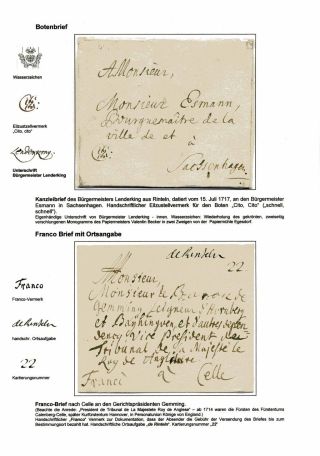 Botenbrief
Wasserzeichen
Eilzustellvermerk
„Cito, cito"
Lenderking
Unterschrift
Bürgermeister Lenderking
A Monsieur,
Monsieur Esmann,
Bourguemaitre de la
ville de et
à
Sacsenhagen
Kanzleibrief des Bürgermeisters Lenderking aus Rinteln, datiert vom 15. Juli 1717, an den Bürgermeister
Esmann in Sachsenhagen. Handschriftlicher Eilzustellvermerk für den Boten „Cito, Cito" („schnell,
schnell")
Eigenhändige Unterschrift von Bürgermeister Lenderking - innen. Wasserzeichen: Wiederholung des gekrönten, zweiseitig
verschlungenen Monogramms des Papiermeisters Valentin Becker in zwei Zweigen von der Papiermühle Egesdorf.
Franco Brief mit Ortsangabe
Franco
Franco-Vermerk
de Rinteln
handschr. Ortsaufgabe
22
Kartierungsnummer
de Rinteln
22
Monsieur
Monsieur le
Gemming, Seigneur d'
et
Vice President du
Tribunal de La Majesté le
Roy de Angleterre
Franco à Celle
Franco-Brief nach Celle an den Gerichtspräsidenten Gemming.
(Beachte die Anrede: „President de Tribunal de La Majesteie Roy de Anglesa" - ab 1714 waren die Fürsten des Fürstentums
Calenberg-Celle, später Kurfürstentum Hannover, in Personalunion Könige von England.)
Handschriftlicher „Franco" Vermerk zur Dokumentation, dass der Absender die Gebühr der Versendung des Briefes bis zum
Bestimmungsort bezahlt hat. Handschriftliche Ortsaufgabe „de Rinteln", Kartierungsnummer „22"